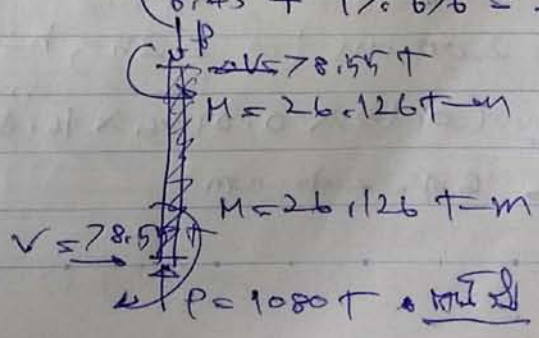 6.45 + 17.676 =
P
V=78.55 T
M = 26.126 T-m
M = 26.126 T-m
V = 78.55 T
P = 1080 T